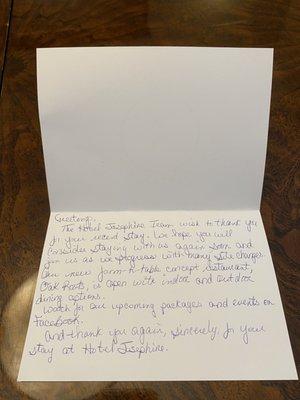 Greetings,
The Hotel Josephine Team wish to thank you
for your recent stay. We hope you will
consider staying with us again soon and
join us as we progress with many site changes.
Our new farm-to-table concept restaurant,
Oak Roots, is open with indoor and outdoor
dining options.
Watch for our upcoming packages and events on
FaceBook.
And thank you again, sincerely, for your
stay at Hotel Josephine.